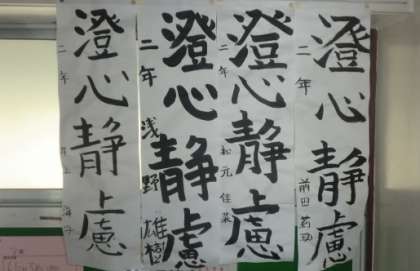 澄心静慮
二年 前田
澄心静慮
二年 松元 佳菜
澄心静慮
二年 浅野 雄樹
澄心静慮
二年